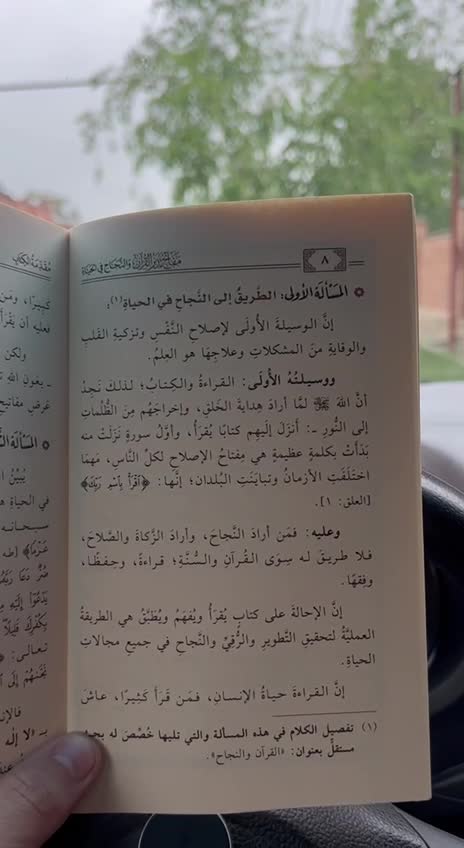 ٨
مفاتح تدبر القرآن والنجاح في الحياة
المسألة الأولى: الطريقُ إلى النَّجاح في الحياة(١):
إنَّ الوسيلةَ الأُولَى لإصلاحِ النَّفْسِ وتزكيةِ القلبِ
والوقايةِ منَ المشكلاتِ وعلاجِهَا هو العلمُ.
ووسيلتُهُ الأُولَى: القراءةُ والكِتابُ؛ لذلكَ نَجِدُ
أنَّ اللهَ ﷻ لمَّا أرادَ هِدايةَ الخَلقِ، وإخراجَهُم مِنَ الظُّلُماتِ
إلى النُّورِ ـ: أَنزَلَ إلَيهِم كتابًا يُقرَأُ، وأوَّلُ سورةٍ نَزَلَتْ منه
بَدَأَتْ بكلمةٍ عظيمةٍ هي مِفتاحُ الإصلاحِ لكلِّ النَّاسِ، مَهمَا
اختَلَفَتِ الأزمَانُ وتبايَنَتِ البُلدان؛ إنَّها: ﴿ٱقۡرَأۡ بِٱسۡمِ رَبِّكَ﴾
[العلق: ١].
وعليه: فمَن أرادَ النَّجاحَ، وأرادَ الزَّكاةَ والصَّلاحَ،
فـلا طريـقَ لـه سِـوَى القُـرآنِ والسُّنَّةِ؛ قراءةً، وحِفظًـا،
وفِقهًا.
إنَّ الإحالةَ على كتابٍ يُقرَأُ ويُفهَمُ ويُطبَّقُ هي الطريقةُ
العمليَّةُ لتحقيقِ التَّطويرِ والرُّقِيِّ والنَّجاحِ في جميعِ مجالاتِ
الحياةِ.
إنَّ القراءةَ حياةُ الإنسانِ، فمَن قَرَأَ كَثِيرًا، عاشَ
(١) تفصيل الكلام في هذه المسألة والتي تليها خُصِّصَ له
مستقلٌّ بعنوان: «القرآن والنجاح».
مُقدّمة الكتاب
كثيرًا، ومَن
فعليه أن يَقْرَأَ
ولكن
ـ يعونِ الله
غرض مفاتيح
في الحياةِ
سبحانه
تعالى: